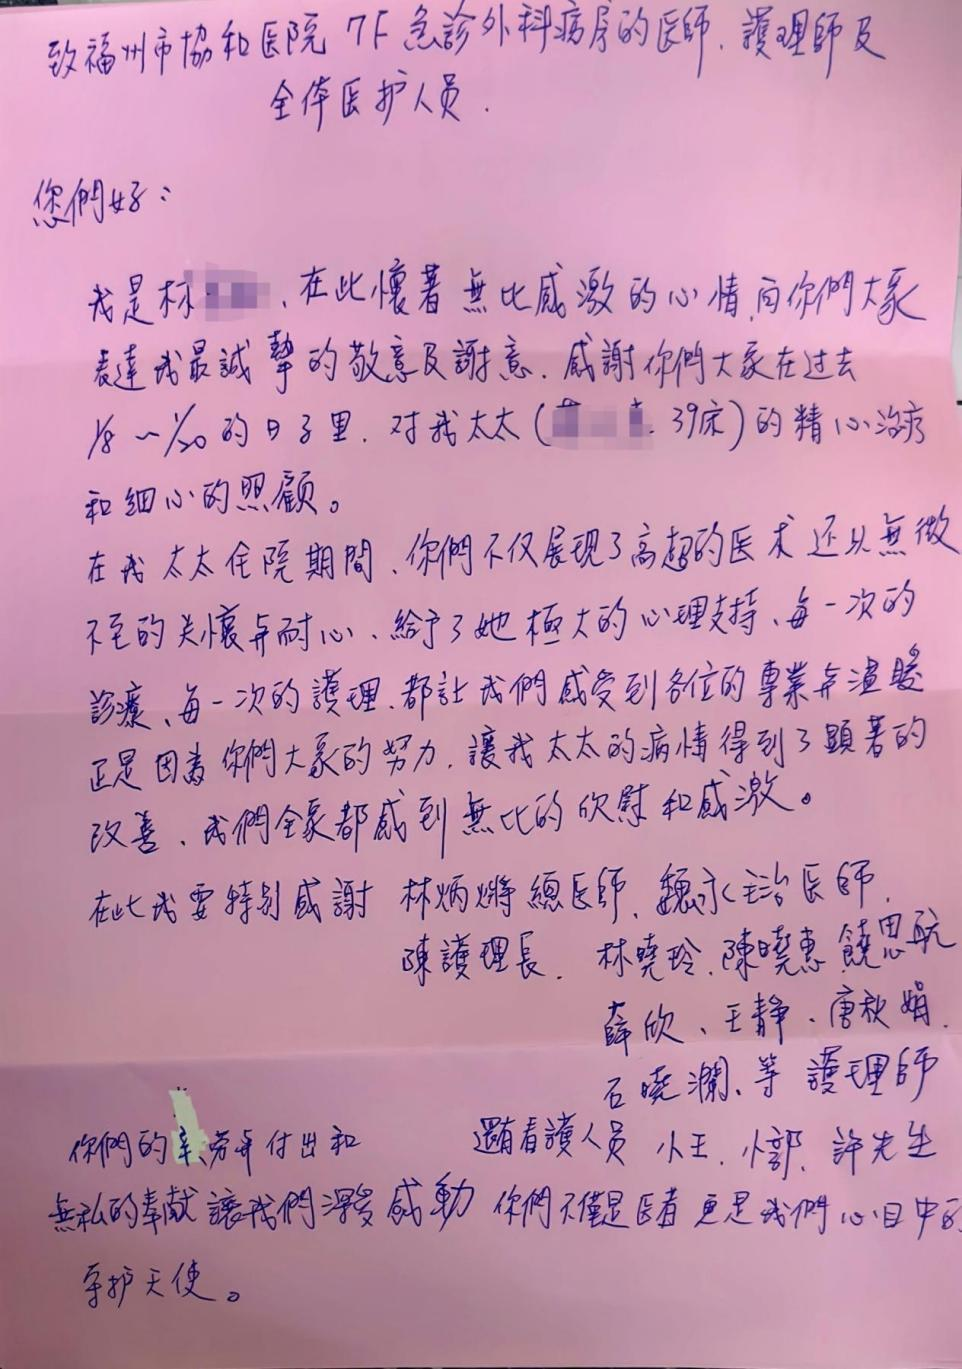 致福州市協和医院 7F 急診外科病房的医師、護理師及
全体医护人员.
您們好：
我是林 、在此懷著無比感激的心情向你們大家
表達我最誠摯的敬意及謝意、感謝你們大家在过去
1/8～1/20的日子里、对我太太( 39床)的精心治疗
和细心的照顧。
在我太太住院期間、你們不仅展现了高超的医术还以無微
不至的关懷与耐心、給予了她極大的心理支持、每一次的
診療、每一次的護理、都让我們感受到各位的專業与温暖
正是因為你們大家的努力、讓我太太的病情得到了顯著的
改善、我們全家都感到無比的欣慰和感激。
在此我要特别感謝 林炳 總医師、魏永 主治医師、
陳護理長、林曉玲、陳曉惠、饒思航
薛欣、王靜、唐秋娟、
石曉瀾、等護理師
你們的辛劳与付出和 還有看護人员 小王、小郭、許先生
無私的奉献讓我們深受感動 你們不僅是医者更是我們心目中的
守护天使。